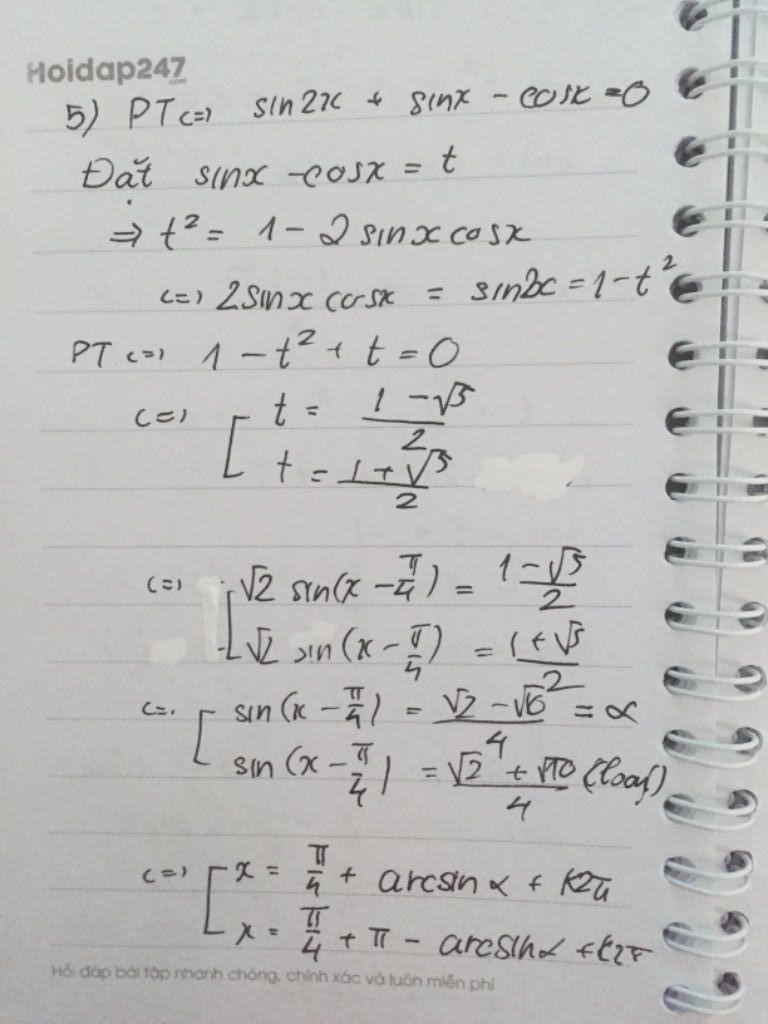 Hoidap247.com
5) PT <=> sin2x + sinx - cosx = 0
Đặt sinx - cosx = t
=> t² = 1 - 2sinxcosx
<=> 2sinxcosx = sin2x = 1 - t²
PT <=> 1 - t² + t = 0
<=> [ t = (1 - √5)/2
t = (1 + √5)/2
<=> [ √2 sin(x - π/4) = (1 - √5)/2
√2 sin(x - π/4) = (1 + √5)/2
<=> [ sin(x - π/4) = (√2 - √10)/4 = α
sin(x - π/4) = (√2 + √10)/4 (loại)
<=> [ x = π/4 + arcsinα + k2π
x = π/4 + π - arcsinα + k2π
Hỏi đáp bài tập nhanh chóng, chính xác và luôn miễn phí